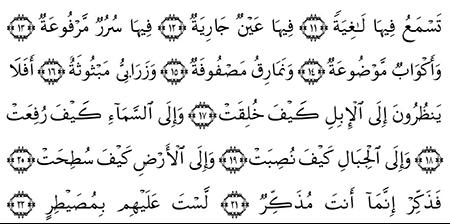 تَسْمَعُ فِيهَا لَـٰغِيَةً ﴿١١﴾ فِيهَا عَيْنٌ جَارِيَةٌ ﴿١٢﴾ فِيهَا سُرُرٌ مَّرْفُوعَةٌ ﴿١٣﴾
وَأَكْوَابٌ مَّوْضُوعَةٌ ﴿١٤﴾ وَنَمَارِقُ مَصْفُوفَةٌ ﴿١٥﴾ وَزَرَابِيُّ مَبْثُوثَةٌ ﴿١٦﴾ أَفَلَا
يَنظُرُونَ إِلَى ٱلْإِبِلِ كَيْفَ خُلِقَتْ ﴿١٧﴾ وَإِلَى ٱلسَّمَآءِ كَيْفَ رُفِعَتْ
﴿١٨﴾ وَإِلَى ٱلْجِبَالِ كَيْفَ نُصِبَتْ ﴿١٩﴾ وَإِلَى ٱلْأَرْضِ كَيْفَ سُطِحَتْ ﴿٢٠﴾
فَذَكِّرْ إِنَّمَآ أَنتَ مُذَكِّرٌ ﴿٢١﴾ لَّسْتَ عَلَيْهِم بِمُصَيْطِرٍ ﴿٢٢﴾